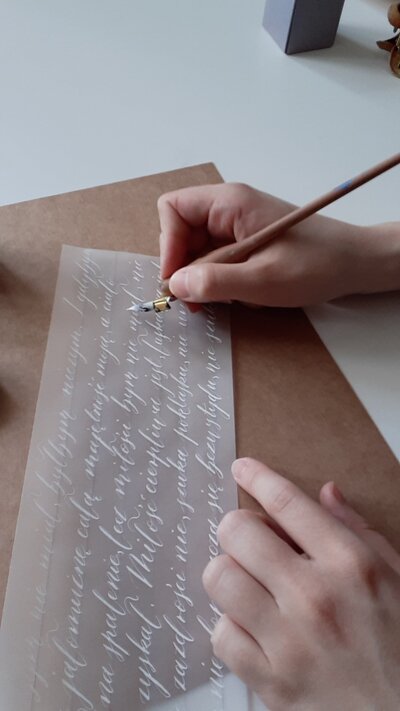 nie miał, byłbym niczym. I gdybym
jałmużnę całą majętność moją, a ciało
na spalenie, lecz miłości bym nie miał, nic
zyskał. Miłość cierpliwa jest, łaskawa
zazdrości nie, szuka poklasku, nie
nie się bezwstydu, nie